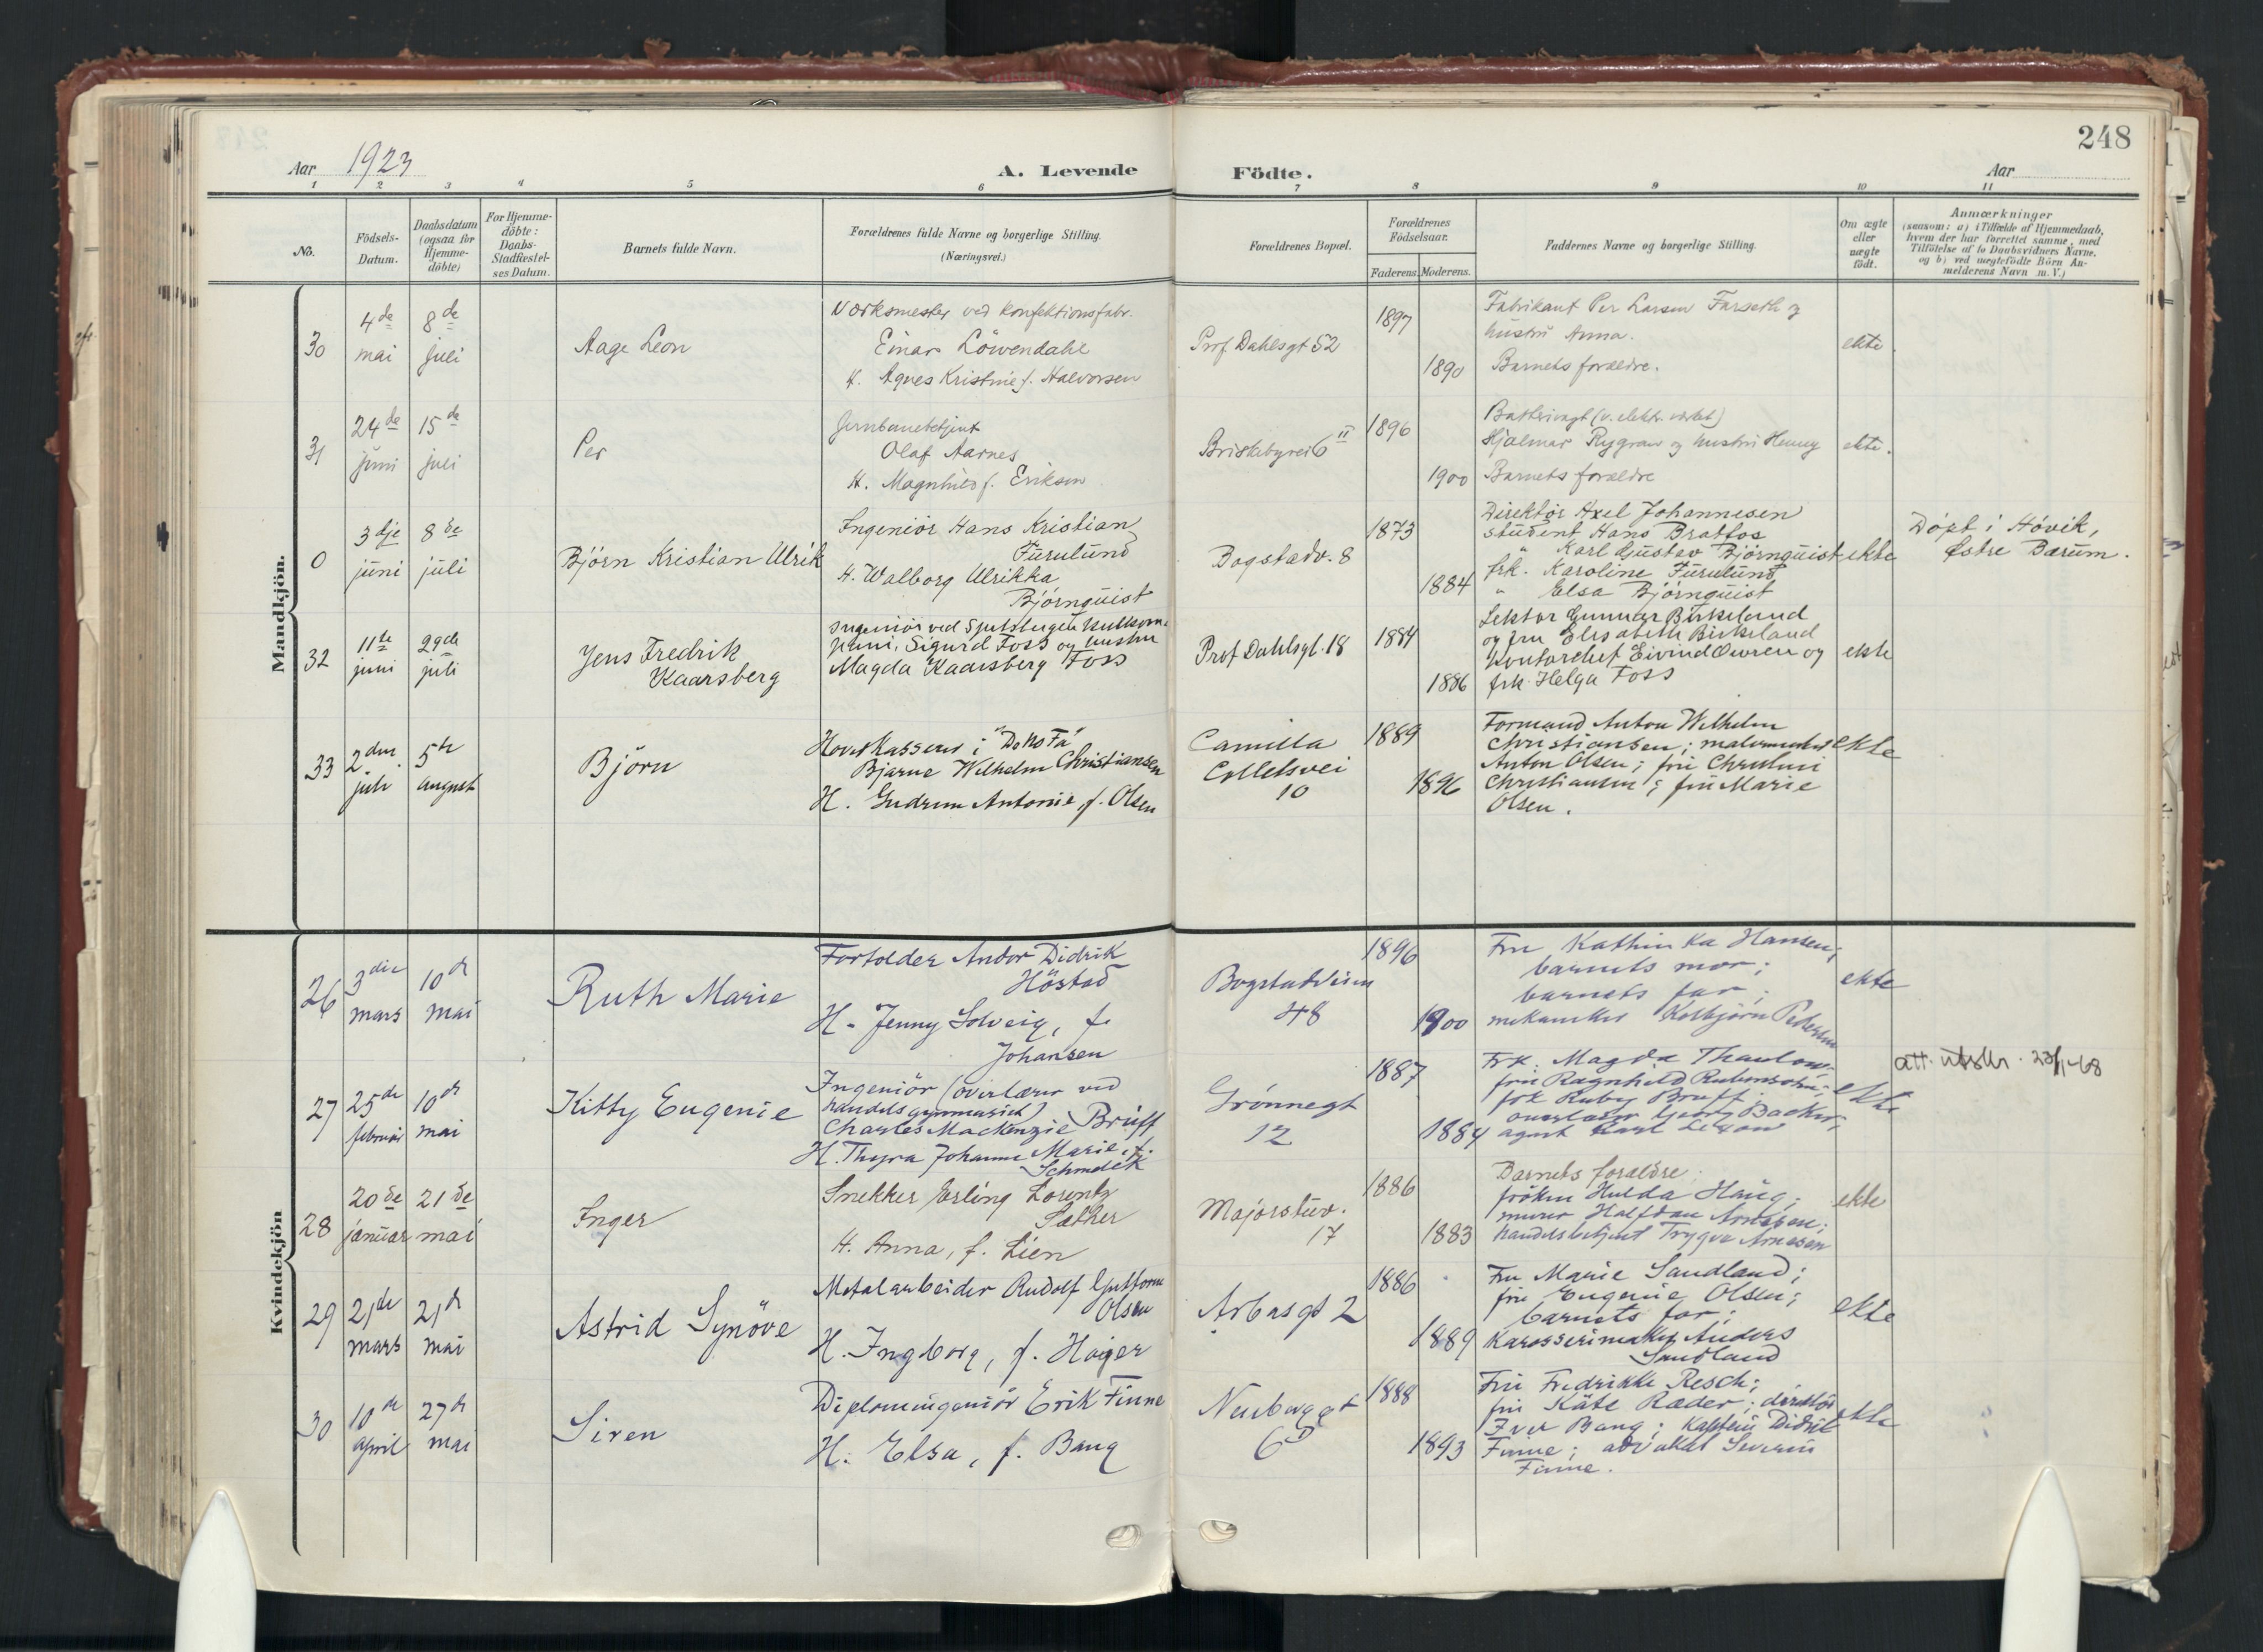 248
Aar 1923
A. Levende Födte.
Aar
1 2 3 4 5 6 7 8 9 10 11
No.
Födsels-Datum.
Daabsdatum (ogsaa for Hjemme-döbte)
For Hjemme-döbte: Daabs-Stadfæstel-ses Datum.
Barnets fulde Navn.
Forældrenes fulde Navne og borgerlige Stilling.
(Næringsvei.)
Forældrenes Bopæl.
Forældrenes Födselsaar.
Faderens. Moderens.
Faddrenes Navne og borgerlige Stilling.
Om ægte eller uægte födt.
Anmærkninger
(saasom: a) i Tilfælde af Hjemmedaab,
hvem der har forrettet samme, med
Tilföielse af to Daabsvidners Navne,
og b) ved uægtefödte Börn An-
melderens Navn m. V.)
Mandkjön.
30
4de mai
8de juli
Aage Leon
Verksmester ved konfektionsfabr.
Einar Löwendahl
H. Agnes Kristine f. Halvorsen
Prof Dahlsgt 52
1897
1890
Fabrikant Per Larsen Farseth og
hustru Anna.
Barnets forældre.
ekte.
31
24de juni
15de juli
Per
Jernbanebetjent
Olaf Aarnes
H. Magnhild f. Eriksen
Briskebyvei 6 II
1896
1900
Hjalmar Rygrav og hustru Henny
Barnets forældre
ekte.
0
3dje juni
8de juli
Björn Kristian Ulrik
Ingeniör Hans Kristian
Furulund
H. Walborg Ulrikka
Björnquist
Bogstadv. 8
1873
1884
Direktör Axel Johannesen
student Hans Brattos
" Karl Gustav Björnquist
frk. Karoline Furulund
" Elsa Björnquist
ekte
Döpt i Hövik,
Östre Bærum.
32
11te juni
29de juli
Jens Fredrik
Kaarsberg
Ingeniör ved Spitsbergen kulkom-
pani, Sigurd Foss og hustru
Magda Kaarsberg Foss
Prof Dahlsgt. 18
1884
1886
Lektor Gunnar Birkeland
og fru Elisabeth Birkeland
Kontorchef Eivind Owren og
frk. Helga Foss
ekte
33
2den juli
5te august
Björn
Hovedkasserer i "Doksta"
Bjarne Wilhelm Christiansen
H. Gudrun Antonie, f. Olsen
Camilla
Colletsvei
10
1889
1896
Formand Anton Wilhelm
Christiansen; malermester
Anton Olsen; fru Christine
Christiansen; fru Marie
Olsen.
ekte
Kvindekjön
26
3die mars
10de mai
Ruth Marie
Fortolder Andor Didrik
Höstad
H. Jenny Solveig, f.
Johansen
Bogstadveien
48
1896
1900
Fru Kathinka Hansen;
barnets mor;
barnets far;
mekaniker Kolbjörn Pedersen
ekte
27
25de februar
10de mai
Kitty Eugenie
Ingeniör (overlærer ved
handelsgymnasiet)
Charles Mackenzie Bruff
H. Thyra Johanne Marie, f.
Schmelck
Grönnegt
12
1887
1884
Frk. Magda Thaulow
fru Ragnhild Rubensohn;
frk Ruby Bruff
overlærer Georg Backer;
agent Karl Lexow
ekte
att. utskr. 23/1-68
28
20de januar
21de mai
Inger
Snekker Erling Lorentz
Sæther
H. Anna, f. Lien
Majorstuv.
17
1886
1883
Barnets forældre
fröken Hulda Haug;
murer Halfdan Arnesen;
handelsbetjent Trygve Arnesen
ekte
29
21de mars
21de mai
Astrid Synöve
Metalarbeider Rudolf Guttorm
Olsen
H. Ingborg, f. Høijer
Arbosgt 2
1886
1889
Fru Marie Sandland;
fru Eugenie Olsen;
barnets far;
Karosserimaker Anders
Sandland
ekte
30
10de april
27de mai
Siren
Diplomingeniör Erik Finne
H. Elsa, f. Bang
Neuberggt
6D
1888
1893
Fru Fredrikke Resch;
fru Käte Ræder; direktör
Iver Bang; kaptein Didrik
Finne; advokat Severin
Finne.
ekte